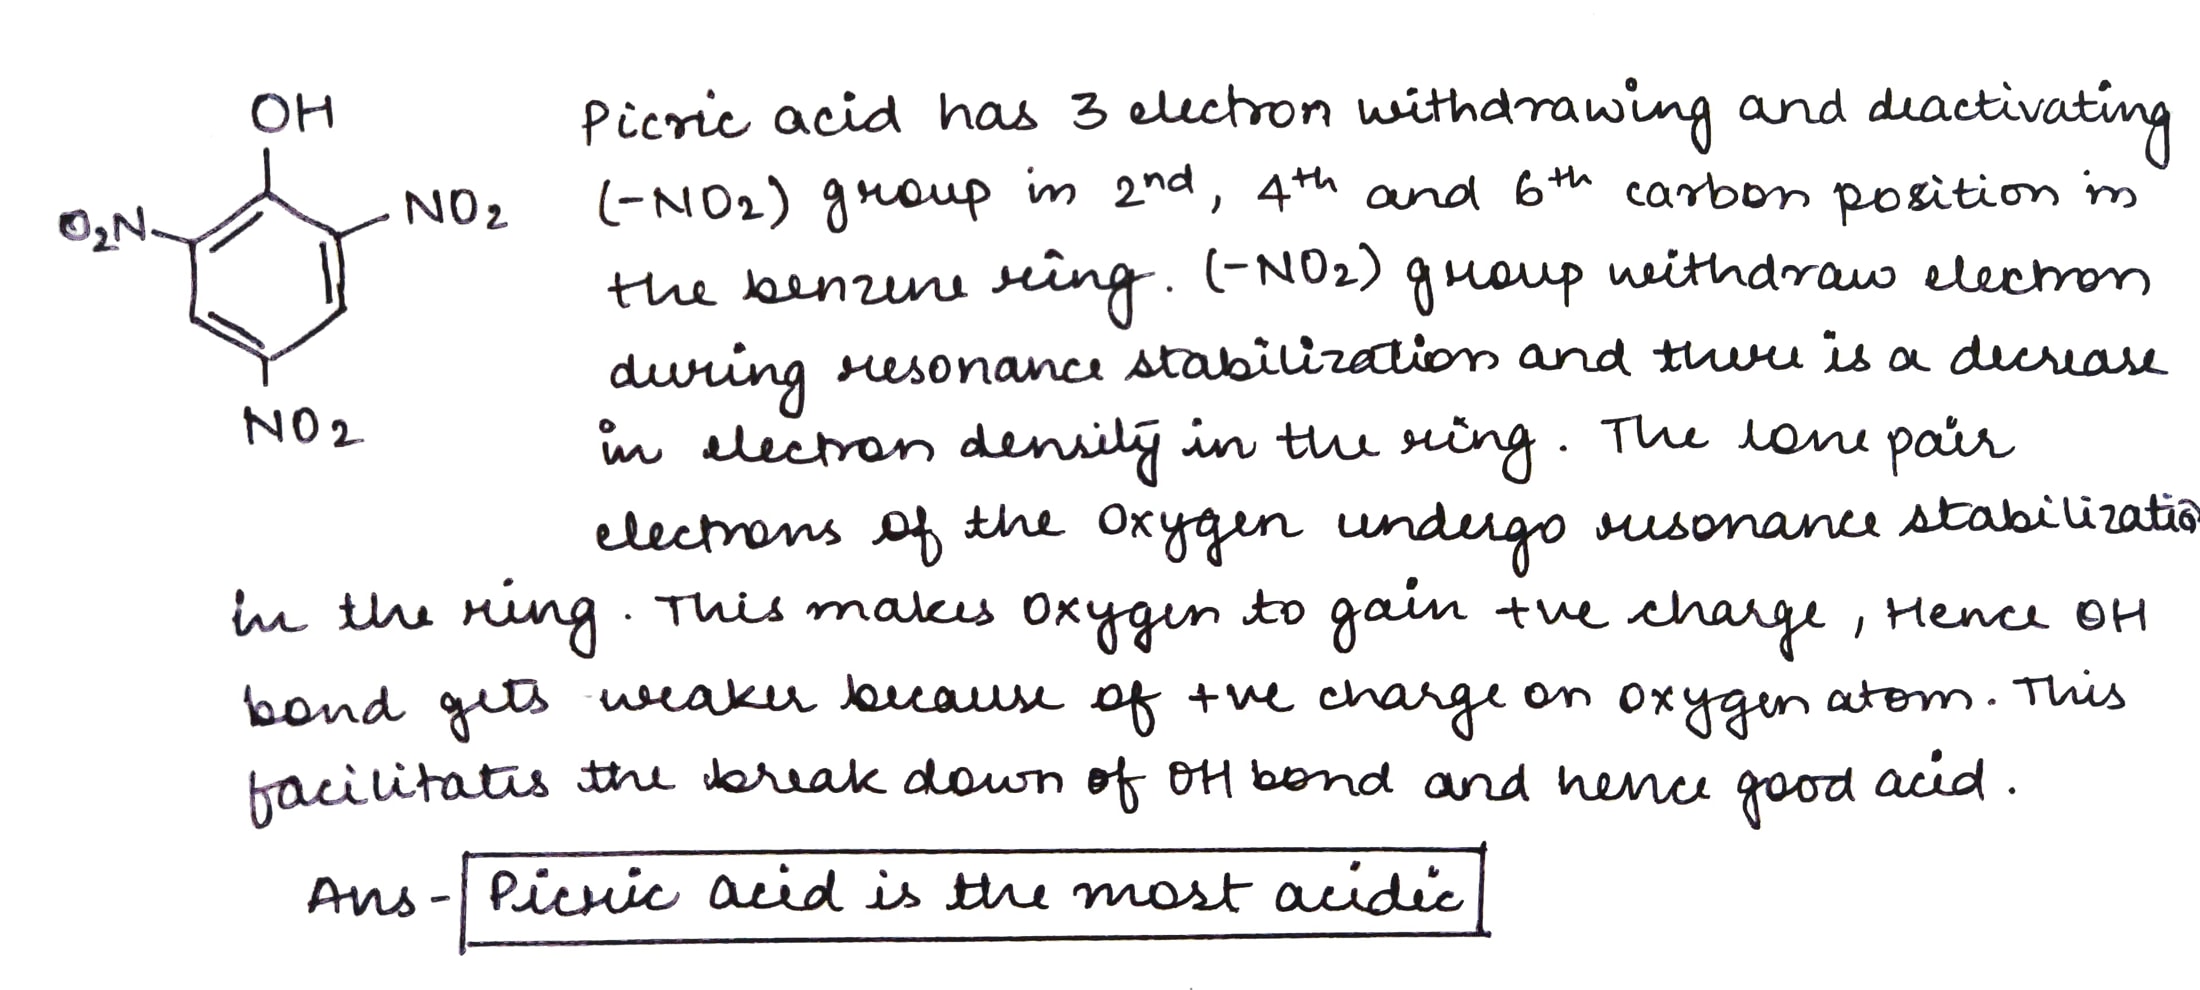 OH
Picric acid has 3 electron withdrawing and deactivating
O2N
NO2
(-NO2) group in 2nd, 4th and 6th carbon position in
the benzene ring. (-NO2) group withdraw electron
during resonance stabilization and there is a decrease
NO2
in electron density in the ring. The lone pair
electrons of the oxygen undergo resonance stabilization
in the ring. This makes oxygen to gain +ve charge, Hence OH
bond gets weaker because of +ve charge on oxygen atom. This
facilitates the break down of OH bond and hence good acid.
Ans - Picric acid is the most acidic